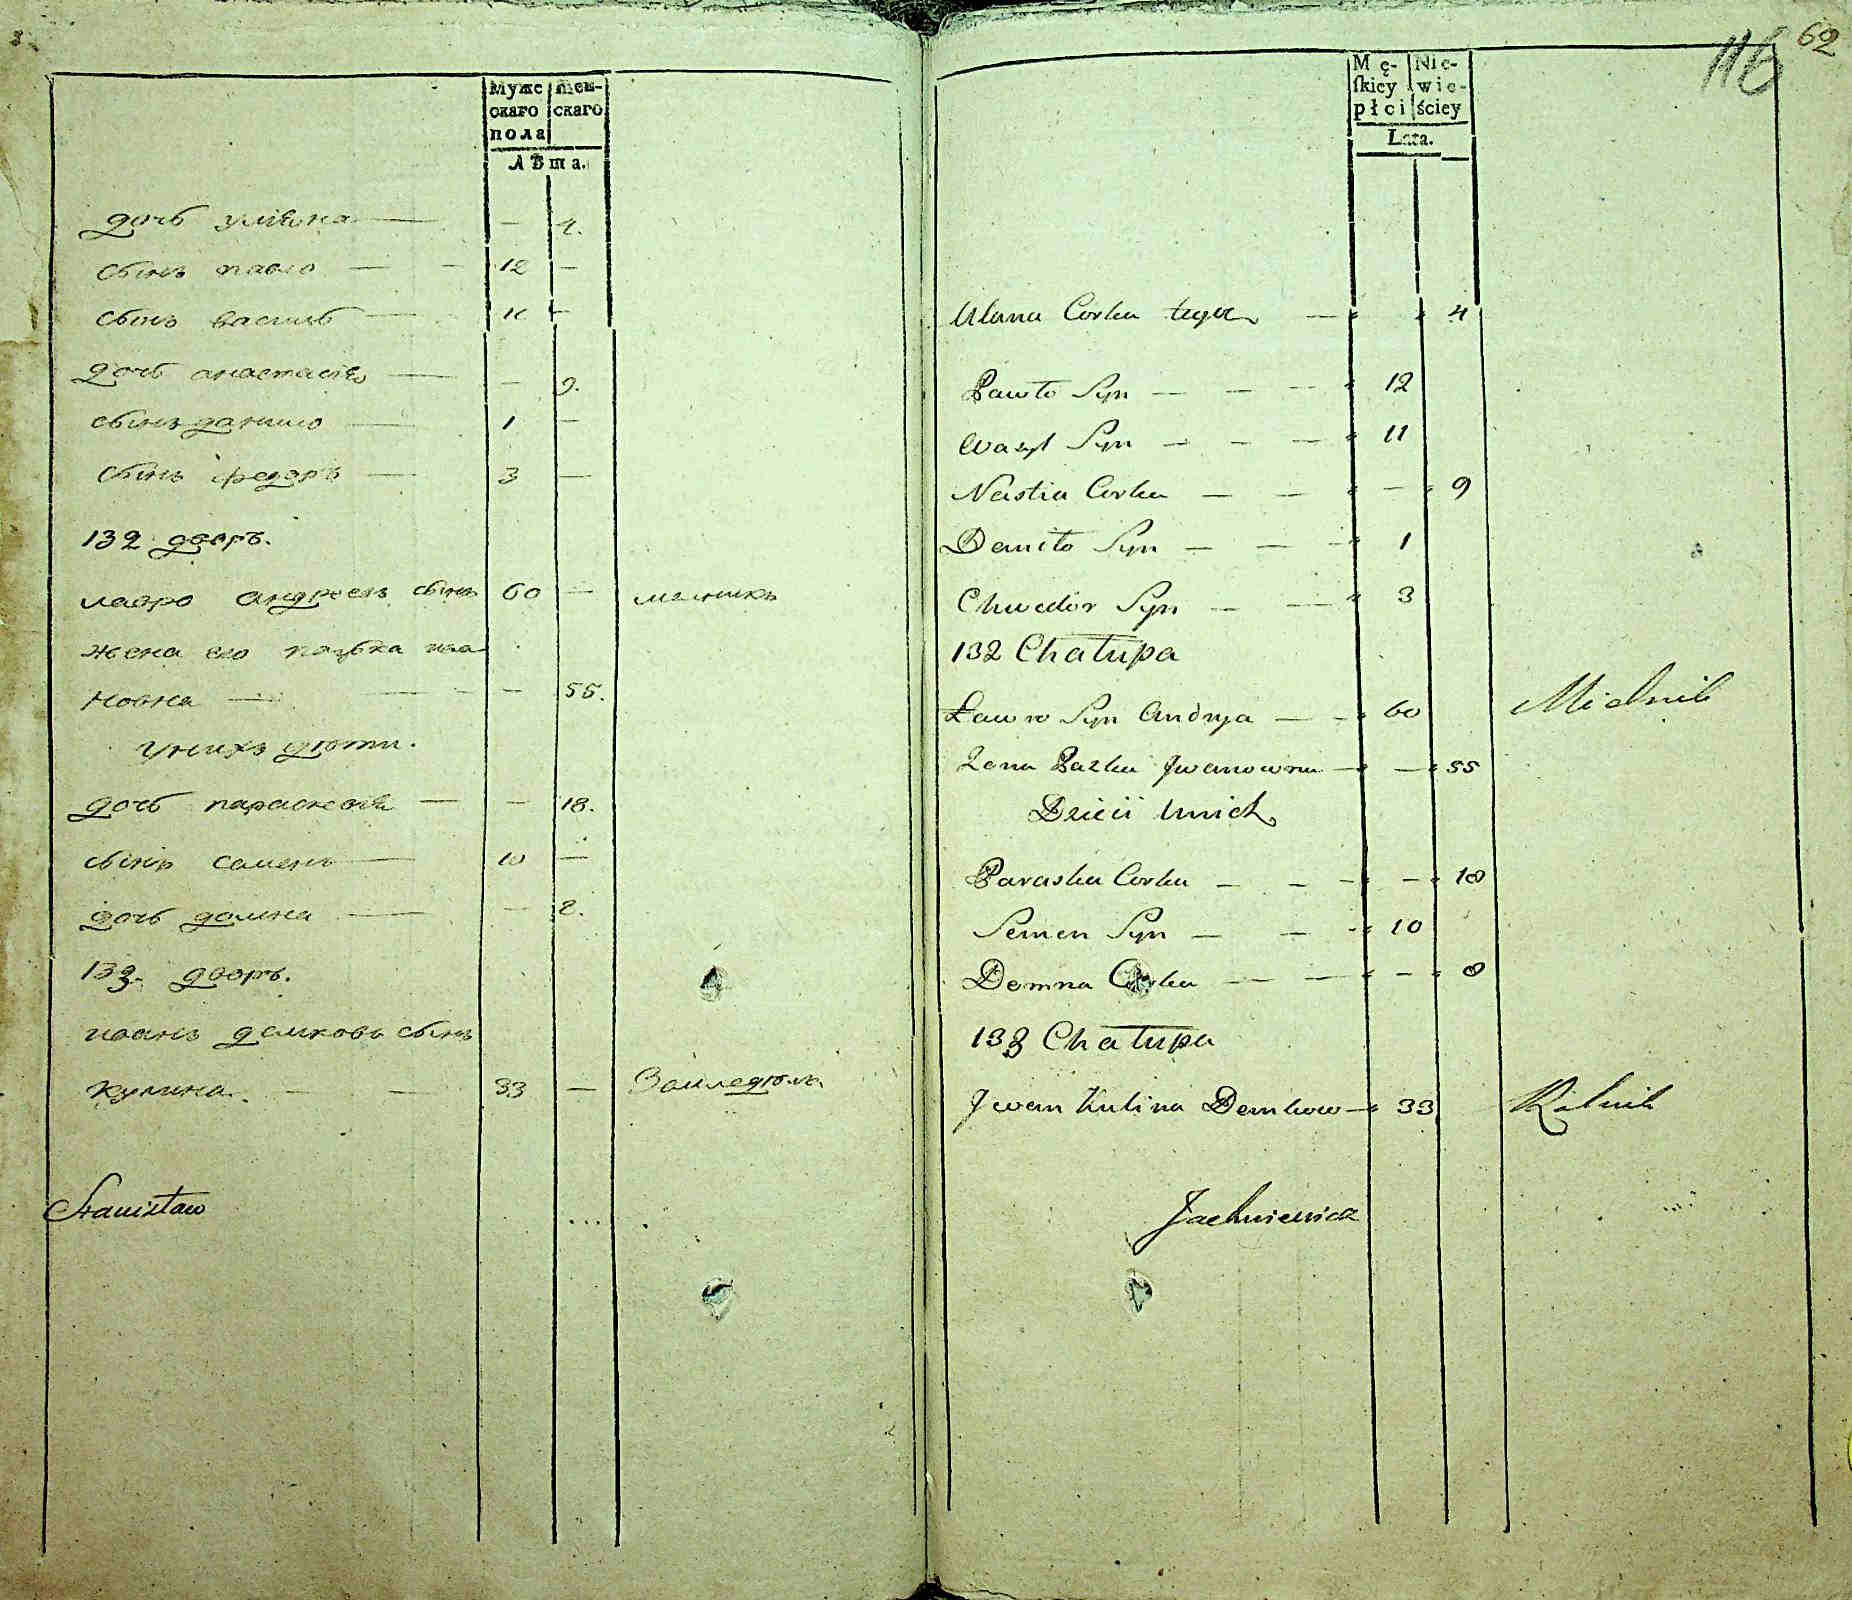 Муже
скаго
пола
Жен-
скаго
Лѣта.
дочь улiяна — — 4.
сынъ павло — — 12 —
сынъ василь — 11 —
дочь анастасiя — — 9.
сынъ данило — 1 —
сынъ федоръ — 3 —
132 дворъ.
лавро андреевъ сынъ 60 — мелникъ
жена его пазька ива
новна — — 55.
у нихъ дѣти.
дочь параскевiя — — 18.
сынъ семенъ — 10 —
дочь домна — — 8.
133 дворъ.
иванъ демковъ сынъ
кулина — — 33 —
Stanisław
116 62
Mę-
skiey
płci
Nie-
wie-
ściey
Lata.
Ulana Corka tegoż — 4
Pawło Syn — — — 12
Wasyl Syn — — — 11
Nastia Corka — — — 9
Daniło Syn — — — 1
Chwedor Syn — — 3
132 Chałupa
Ławro Syn Andryja — — 60 Mielnik
Zona Pazka Jwanowna — — 55
Dzieci u nich
Paraska Corka — — — — 18
Semen Syn — — — 10
Domna Corka — — — 8
133 Chałupa
Jwan Kulina Demkow — 33 Rolnik
Jachniewicz